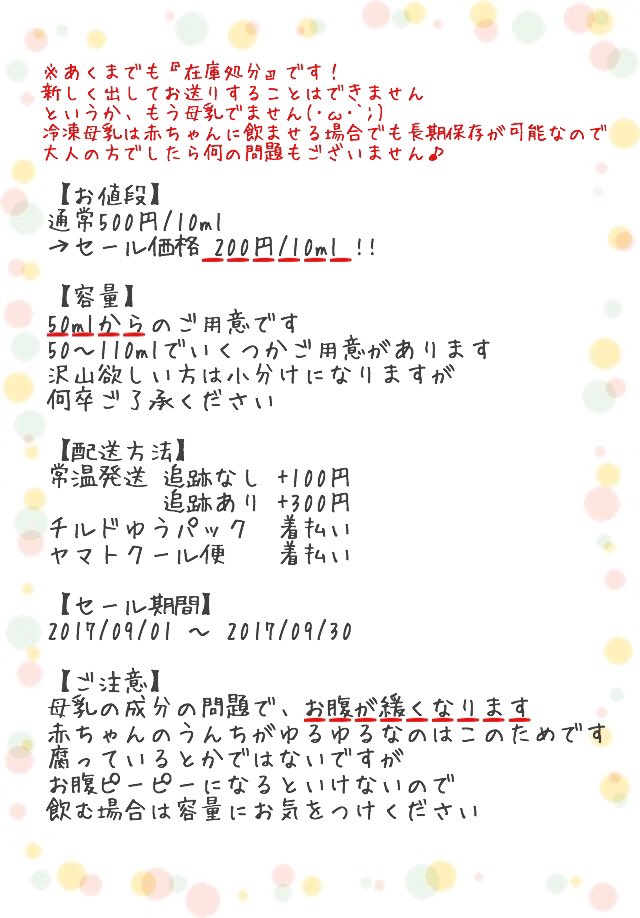 ※あくまでも『在庫処分』です!
新しく出してお送りすることはできません
というか、もう母乳でません(・ω・`;)
冷凍母乳は赤ちゃんに飲ませる場合でも長期保存が可能なので
大人の方でしたら何の問題もございません♪
【お値段】
通常500円/10ml
→セール価格 200円/10ml !!
【容量】
50mlからのご用意です
50～110mlでいくつかご用意があります
沢山欲しい方は小分けになりますが
何卒ご了承ください
【配送方法】
常温発送 追跡なし +100円
追跡あり +300円
チルドゆうパック 着払い
ヤマトクール便 着払い
【セール期間】
2017/09/01 ～ 2017/09/30
【ご注意】
母乳の成分の問題で、お腹が緩くなります
赤ちゃんのうんちがゆるゆるなのはこのためです
腐っているとかではないですが
お腹ピーピーになるといけないので
飲む場合は容量にお気をつけください